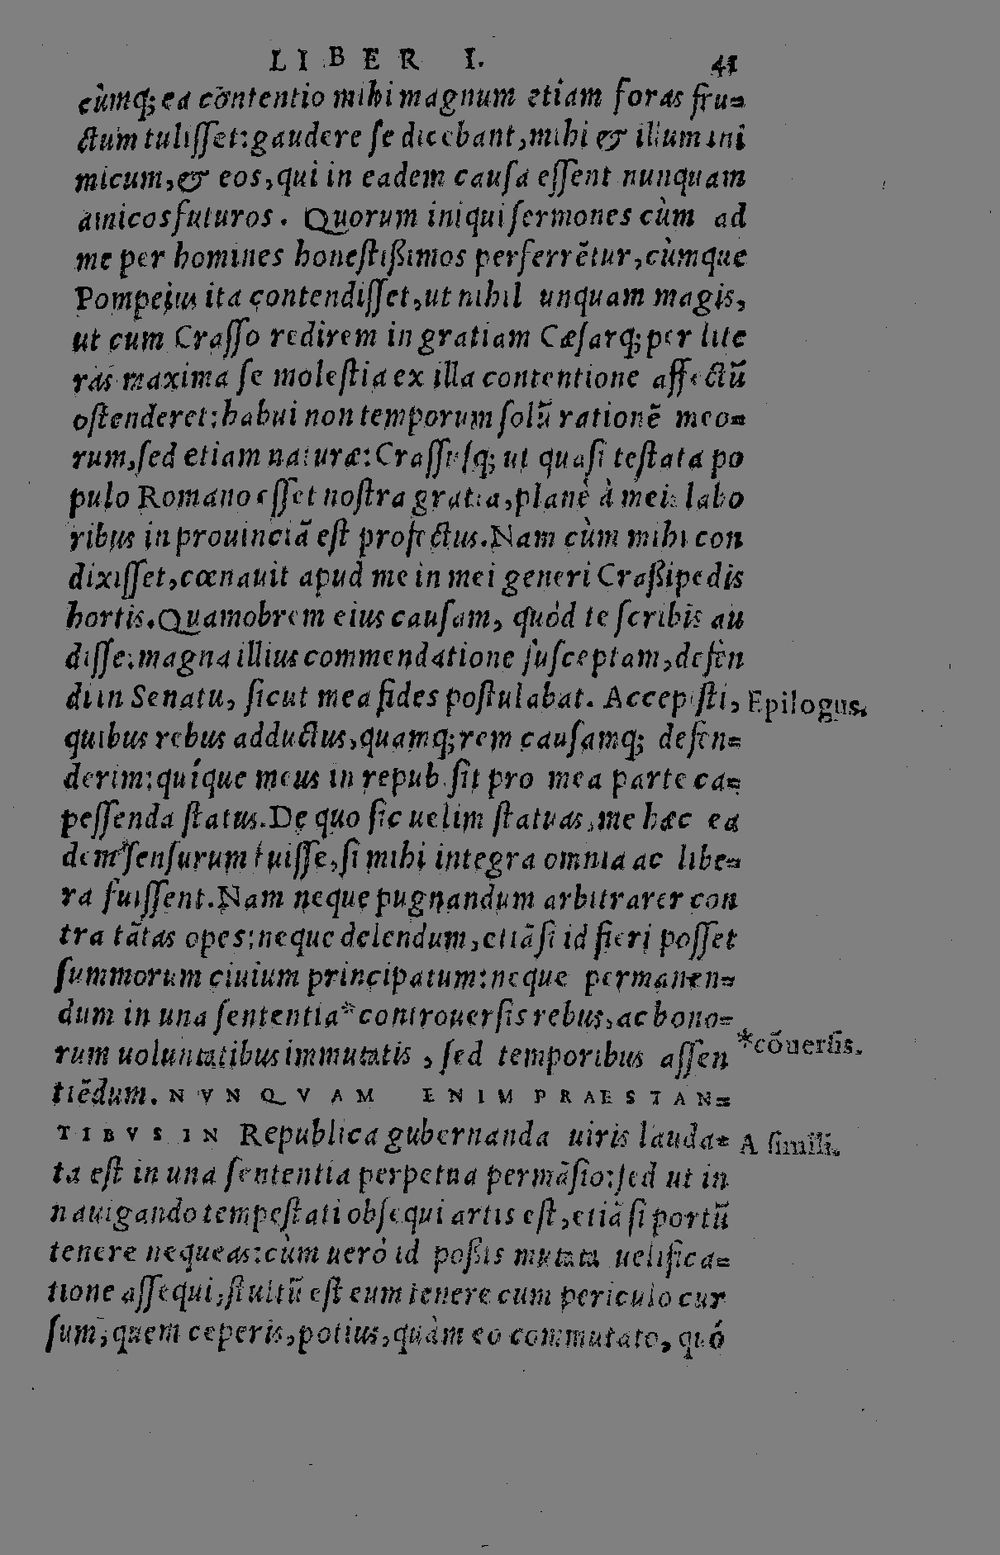 LIBER I. 41
cùmq; ea cōntentio mihi magnum etiam foras fru=
ctum tulisset: gaudere se dicebant, mihi & illum ini
micum, & eos, qui in eadem causa essent nunquam
amicos futuros. Quorum iniqui sermones cùm ad
me per homines honestißimos perferrētur, cùmque
Pompeius ita contendisset, ut nihil unquam magis,
ut cum Crasso redirem in gratiam Cæsarq; per lite
ras maxima se molestia ex illa contentione affectū
ostenderet: habui non temporum solū rationē meo=
rum, sed etiam naturæ: Crassusq; ut quasi testata po
pulo Romano esset nostra gratia, planè à meis labo
ribus in prouinciā est profectus. Nam cùm mihi con
dixisset, cœnauit apud me in mei generi Craßipedis
hortis. Quamobrem eius causam, quòd te scribis au
disse: magna illius commendatione susceptam, defen
di in Senatu, sicut mea fides postulabat. Accepisti,
Epilogus.
quibus rebus adductus, quamq; rem causamq; defen=
derim: quíque meus in repub. sit pro mea parte ca=
pessenda status. De quo sic uelim statuas, me hæc ea
dem sensurum fuisse, si mihi integra omnia ac libe=
ra fuissent. Nam neque pugnandum arbitrarer con
tra tātas opes: neque delendum, etiā si id fieri posset
summorum ciuium principatum: neque permanen=
dum in una sententia* controuersis rebus, ac bono=
*cōuersis.
rum uoluntatibus immutatis, sed temporibus assen
tiēdum. NVNQVAM ENIM PRAESTAN=
TIBVS IN Republica gubernanda uiris lauda=
A simili.
ta est in una sententia perpetua permāsio: sed ut in
nauigando tempestati obsequi artis est, etiā si portū
tenere nequeas: cùm uerò id poßis mutata uelifica=
tione assequi, stultū est eum tenere cum periculo cur
sum, quem ceperis, potius, quàm eo commutato, quó